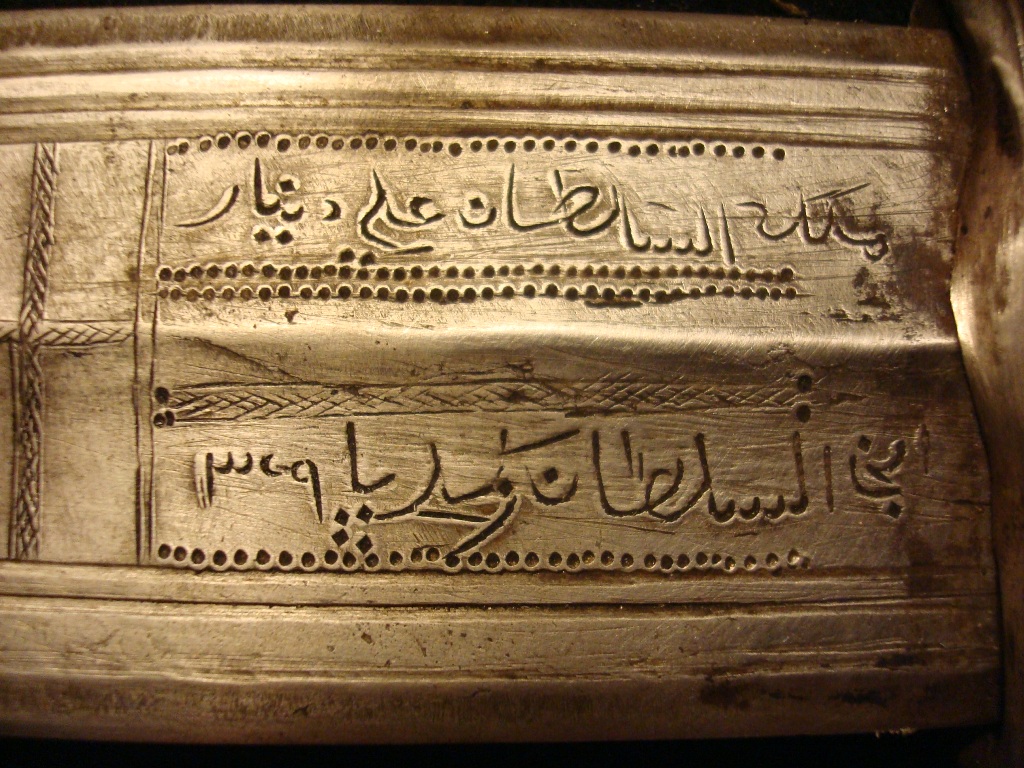 ملك السلطان علي دينار
ابن السلطان زكريا ٣٢٩